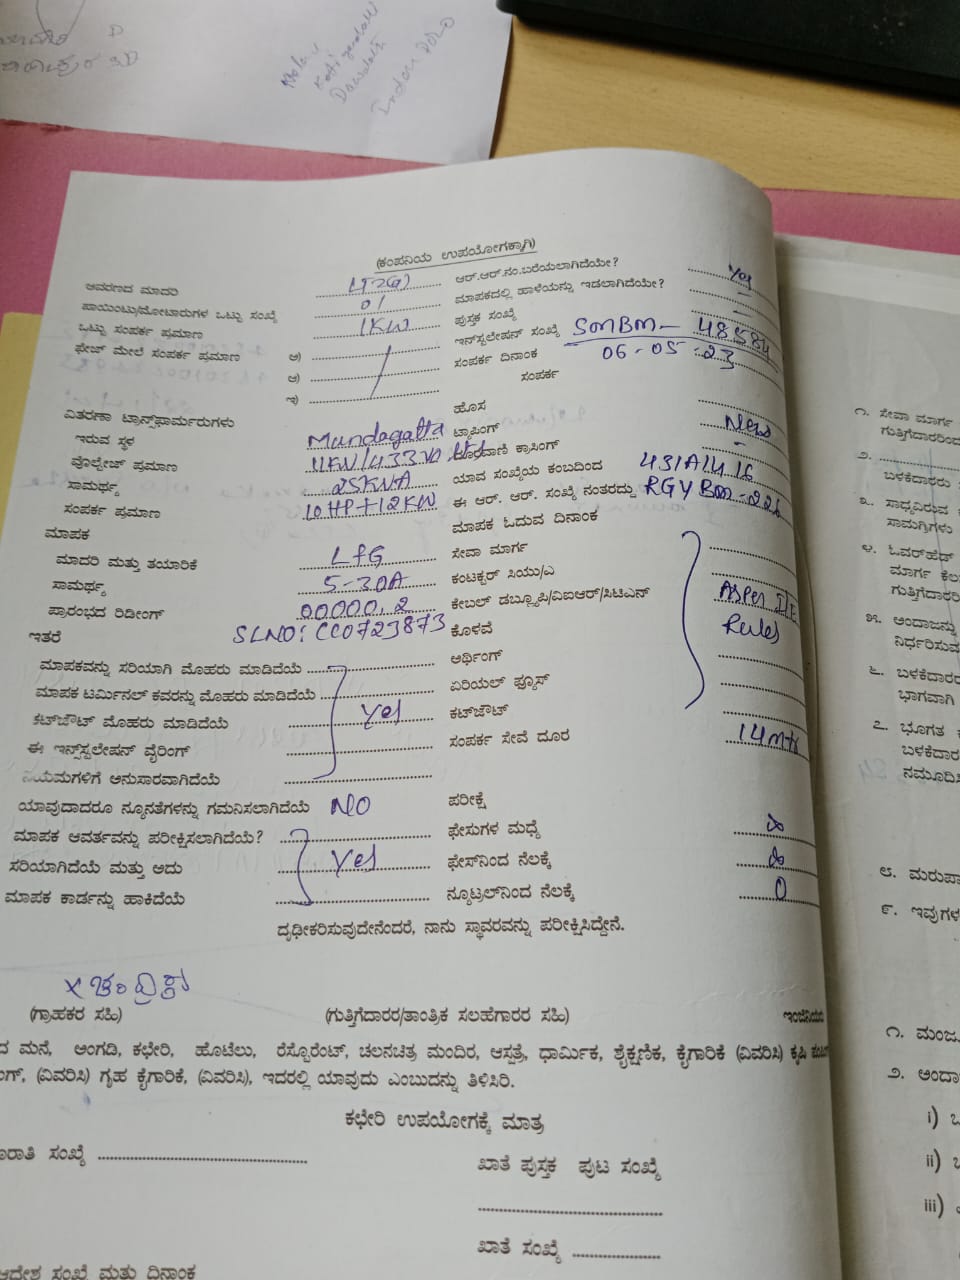 Indan 2020
(ಕಂಪನಿಯ ಉಪಯೋಗಕ್ಕಾಗಿ)
ಆವರಣದ ಮಾದರಿ LT2(a) ಆರ್.ಆರ್.ನಂ.ಬರೆಯಲಾಗಿದೆಯೇ? Yes
ಪಾಯಿಂಟು/ಮೋಟಾರುಗಳ ಒಟ್ಟು ಸಂಖ್ಯೆ 01 ಮಾಪಕದಲ್ಲಿ ಹಾಳೆಯನ್ನು ಇಡಲಾಗಿದೆಯೇ? -
ಒಟ್ಟು ಸಂಪರ್ಕ ಪ್ರಮಾಣ 1KW ಪುಸ್ತಕ ಸಂಖ್ಯೆ -
ಫೇಜ್ ಮೇಲೆ ಸಂಪರ್ಕ ಪ್ರಮಾಣ ಅ) ಇನ್‌ಸ್ಟಲೇಷನ್ ಸಂಖ್ಯೆ SMBM- 48584
ಆ) ಸಂಪರ್ಕ ದಿನಾಂಕ 06-05-23
ಇ) ಸಂಪರ್ಕ
ವಿತರಣಾ ಟ್ರಾನ್ಸ್‌ಫಾರ್ಮರುಗಳು ಹೊಸ New
ಇರುವ ಸ್ಥಳ Mundagatta ಟ್ಯಾಪಿಂಗ್ -
ವೊಲ್ಟೇಜ್ ಪ್ರಮಾಣ 11KV/433V ಕ್ರಾಸಿಂಗ್
ಸಾಮರ್ಥ್ಯ 25KVA ಯಾವ ಸಂಖ್ಯೆಯ ಕಂಬದಿಂದ
ಸಂಪರ್ಕ ಪ್ರಮಾಣ 10HP+12KW ಈ ಆರ್. ಆರ್. ಸಂಖ್ಯೆ ನಂತರದ್ದು
ಮಾಪಕ ಮಾಪಕ ಓದುವ ದಿನಾಂಕ
ಮಾದರಿ ಮತ್ತು ತಯಾರಿಕೆ L&G ಸೇವಾ ಮಾರ್ಗ
ಸಾಮರ್ಥ್ಯ 5-30A ಕಂಟಕ್ಟರ್ ಸಿಯು/ಎ
ಪ್ರಾರಂಭದ ರಿಡೀಂಗ್ 00000.2 ಕೇಬಲ್ ಡಬ್ಲ್ಯೂಪಿ/ವಿಐಆರ್/ಸಿಟಿಎನ್ As per IE
ಇತರೆ SLNO: CC0723873 ಕೊಳವೆ Rules
ಮಾಪಕವನ್ನು ಸರಿಯಾಗಿ ಮೊಹರು ಮಾಡಿದೆಯೆ ಅರ್ಥಿಂಗ್
ಮಾಪಕ ಟರ್ಮಿನಲ್ ಕವರನ್ನು ಮೊಹರು ಮಾಡಿದೆಯೆ ಏರಿಯಲ್ ಫ್ಯೂಸ್
ಕಟ್‌ಔಟ್ ಮೊಹರು ಮಾಡಿದೆಯೆ Yes ಕಟ್‌ಔಟ್
ಈ ಇನ್ಸ್‌ಸ್ಟಲೇಷನ್ ವೈರಿಂಗ್ ಸಂಪರ್ಕ ಸೇವೆ ದೂರ 14mts
ನಿಯಮಗಳಿಗೆ ಅನುಸಾರವಾಗಿದೆಯೆ
ಯಾವುದಾದರೂ ನ್ಯೂನತೆಗಳನ್ನು ಗಮನಿಸಲಾಗಿದೆಯೆ NO ಪರೀಕ್ಷೆ
ಮಾಪಕ ಆವರ್ತವನ್ನು ಪರೀಕ್ಷಿಸಲಾಗಿದೆಯೆ? ಫೇಸುಗಳ ಮಧ್ಯೆ ∞
ಸರಿಯಾಗಿದೆಯೆ ಮತ್ತು ಅದು Yes ಫೇಸ್‌ನಿಂದ ನೆಲಕ್ಕೆ ∞
ಮಾಪಕ ಕಾರ್ಡನ್ನು ಹಾಕಿದೆಯೆ ನ್ಯೂಟ್ರಲ್‌ನಿಂದ ನೆಲಕ್ಕೆ 0
ದೃಢೀಕರಿಸುವುದೇನೆಂದರೆ, ನಾನು ಸ್ಥಾವರವನ್ನು ಪರೀಕ್ಷಿಸಿದ್ದೇನೆ.
x ಚಂದ್ರಿಕಾ
(ಗ್ರಾಹಕರ ಸಹಿ) (ಗುತ್ತಿಗೆದಾರರ/ತಾಂತ್ರಿಕ ಸಲಹೆಗಾರರ ಸಹಿ) ಇಂಜಿನಿಯರ
ದ ಮನೆ, ಅಂಗಡಿ, ಕಛೇರಿ, ಹೊಟೆಲು, ರೆಸ್ಟೋರೆಂಟ್, ಚಲನಚಿತ್ರ ಮಂದಿರ, ಆಸ್ಪತ್ರೆ, ಧಾರ್ಮಿಕ, ಶೈಕ್ಷಣಿಕ, ಕೈಗಾರಿಕೆ (ವಿವರಿಸಿ) ಕೃಷಿ
ಂಗ್, (ವಿವರಿಸಿ) ಗೃಹ ಕೈಗಾರಿಕೆ, (ವಿವರಿಸಿ), ಇದರಲ್ಲಿ ಯಾವುದು ಎಂಬುದನ್ನು ತಿಳಿಸಿರಿ.
ಕಛೇರಿ ಉಪಯೋಗಕ್ಕೆ ಮಾತ್ರ
ಠಾರಾತಿ ಸಂಖ್ಯೆ
ಖಾತೆ ಪುಸ್ತಕ ಪುಟ ಸಂಖ್ಯೆ
ಖಾತೆ ಸಂಖ್ಯೆ
ಆದೇಶ ಸಂಖ್ಯೆ ಮತ್ತು ದಿನಾಂಕ
೧. ಸೇವಾ ಮಾರ್ಗ
ಗುತ್ತಿಗೆದಾರರಿಂದ
೨.
ಬಳಕೆದಾರರು
೩. ಸಾಧ್ಯವಿರುವ
ಸಾಮಗ್ರಿಗಳು
೪. ಓವರ್‌ಹೆಡ್
ಮಾರ್ಗ ಕೆಲ
ಗುತ್ತಿಗೆದಾರರಿ
೫. ಅಂದಾಜನ್ನು
ನಿರ್ಧರಿಸುವ
೬. ಬಳಕೆದಾರರ
ಭಾಗವಾಗಿ
೭. ಭೂಗತ
ಬಳಕೆದಾರ
ನಮೂದಿಸಿ
೮. ಮರುಪಾ
೯. ಇವುಗಳ
೧. ಮಂಜೂ
೨. ಅಂದಾ
i)
ii)
iii)